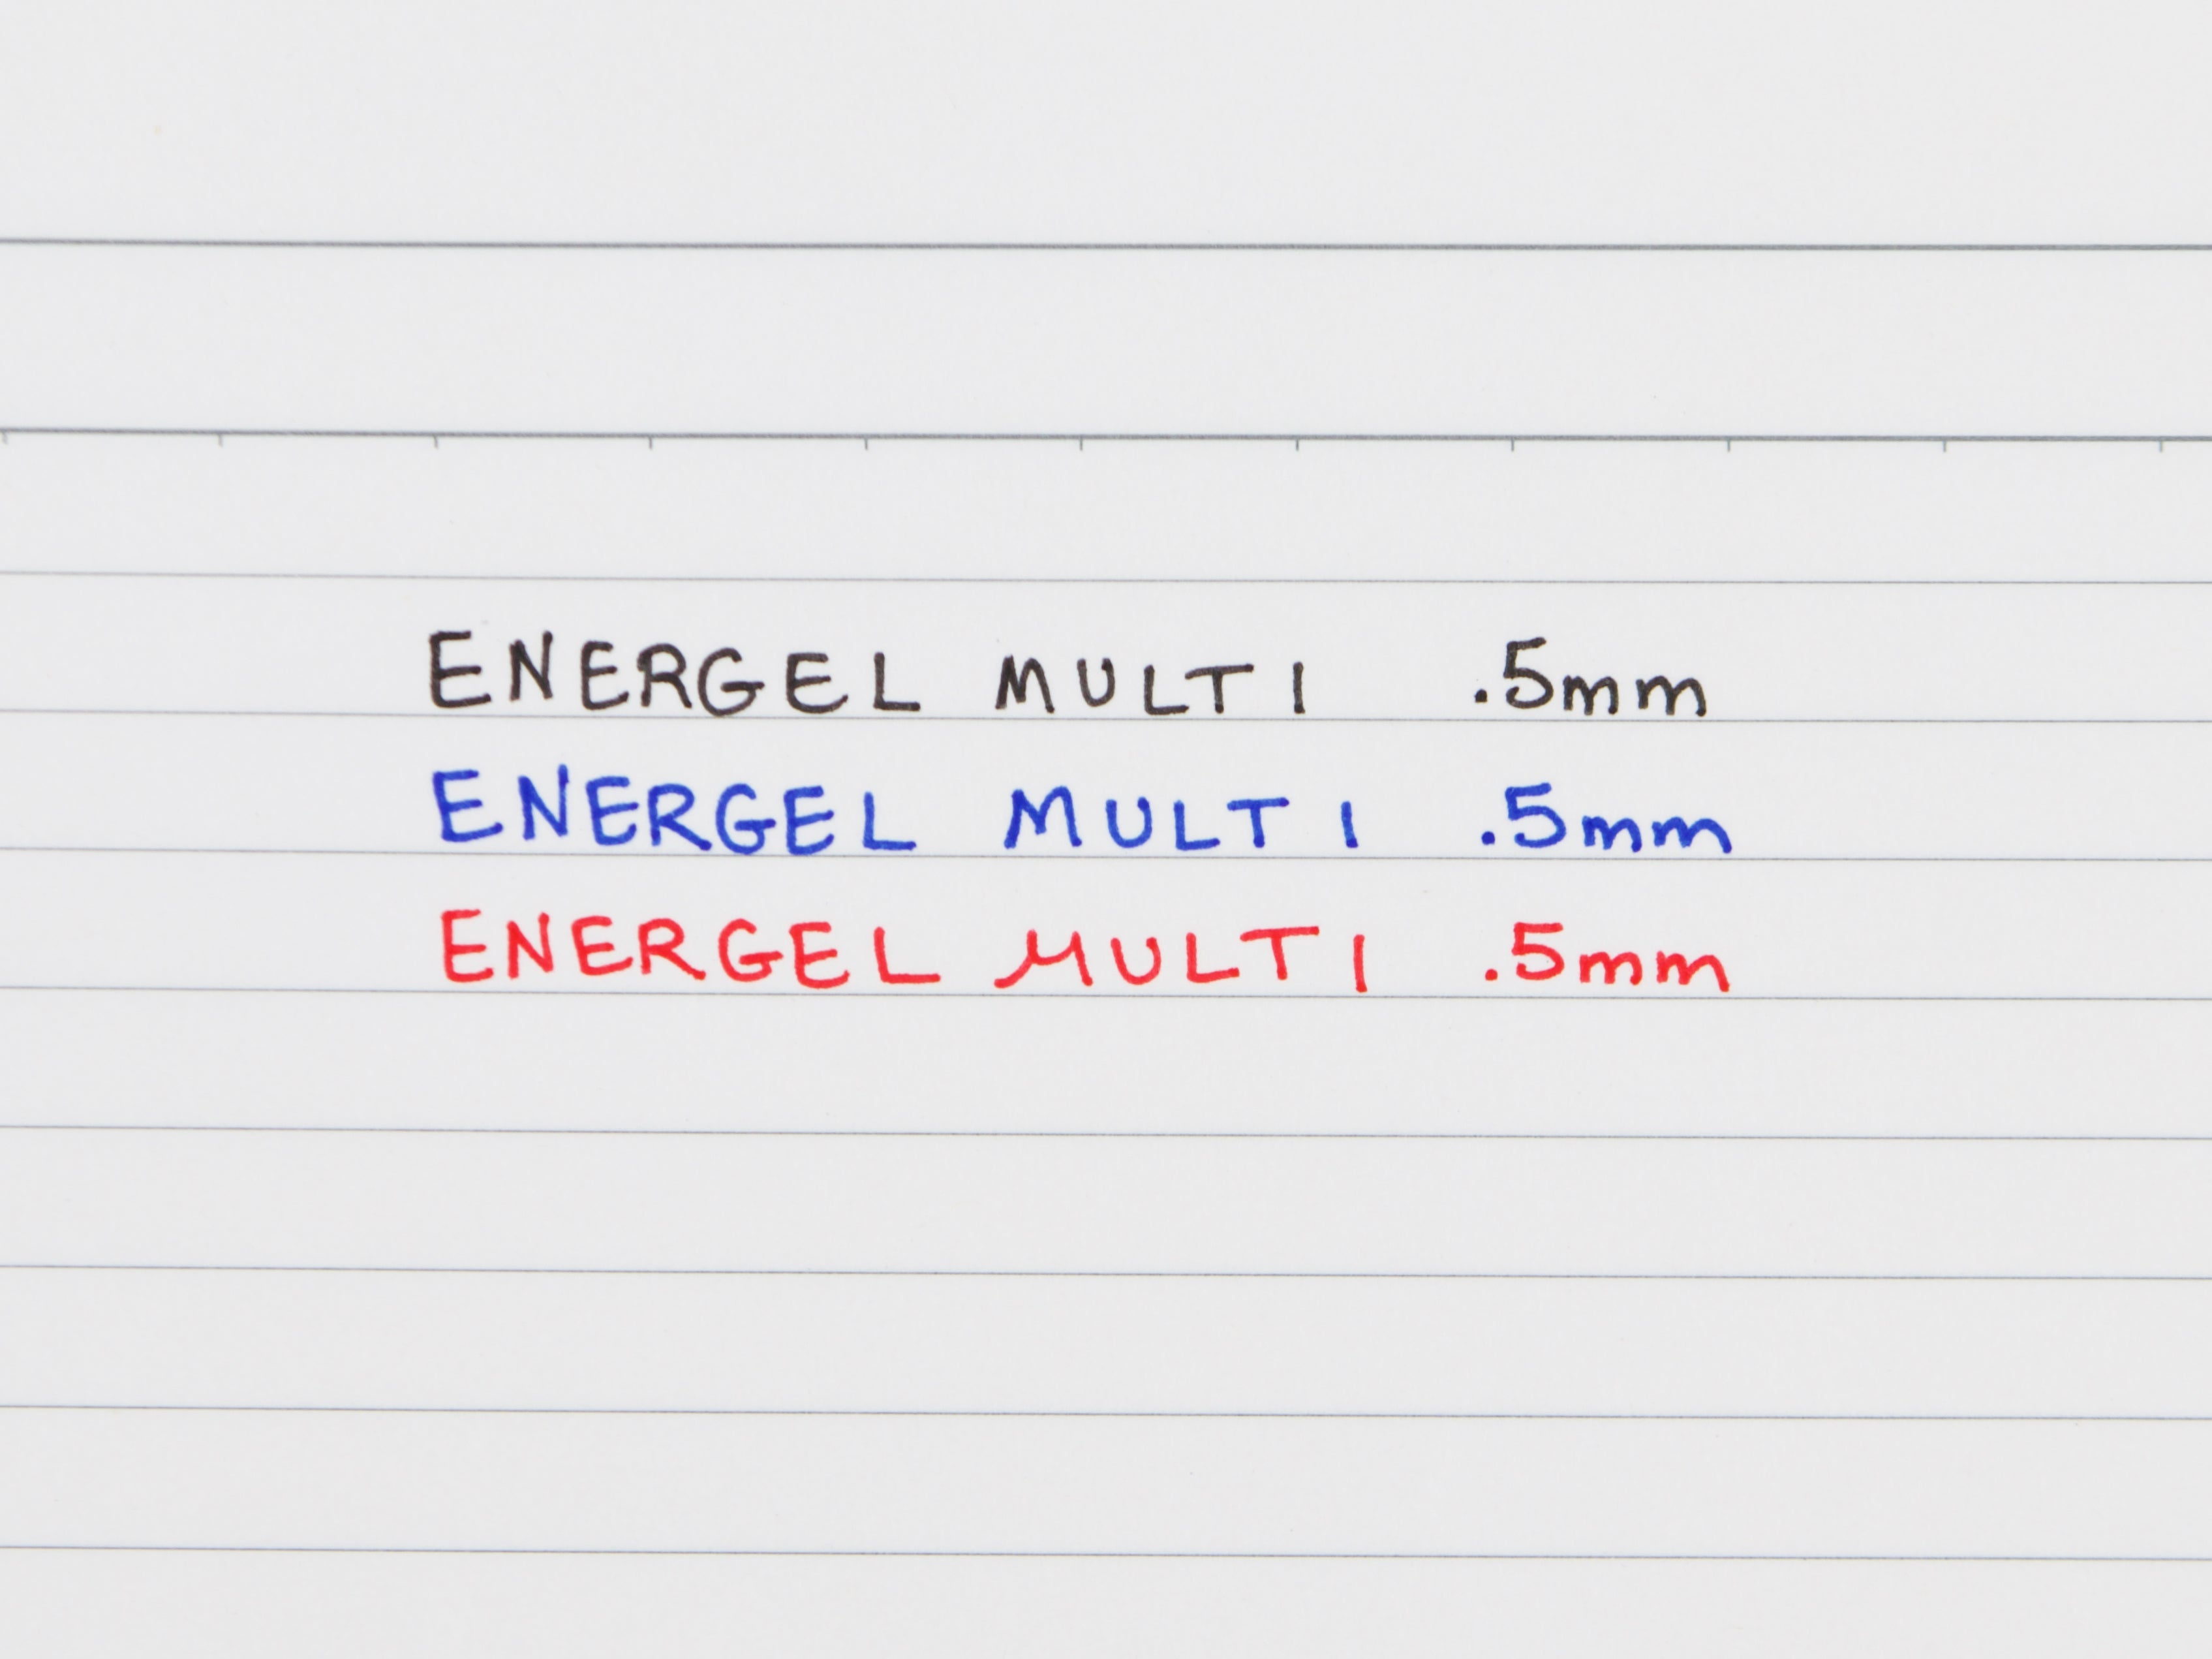 ENERGEL MULTI .5mm
ENERGEL MULTI .5mm
ENERGEL MULTI .5mm